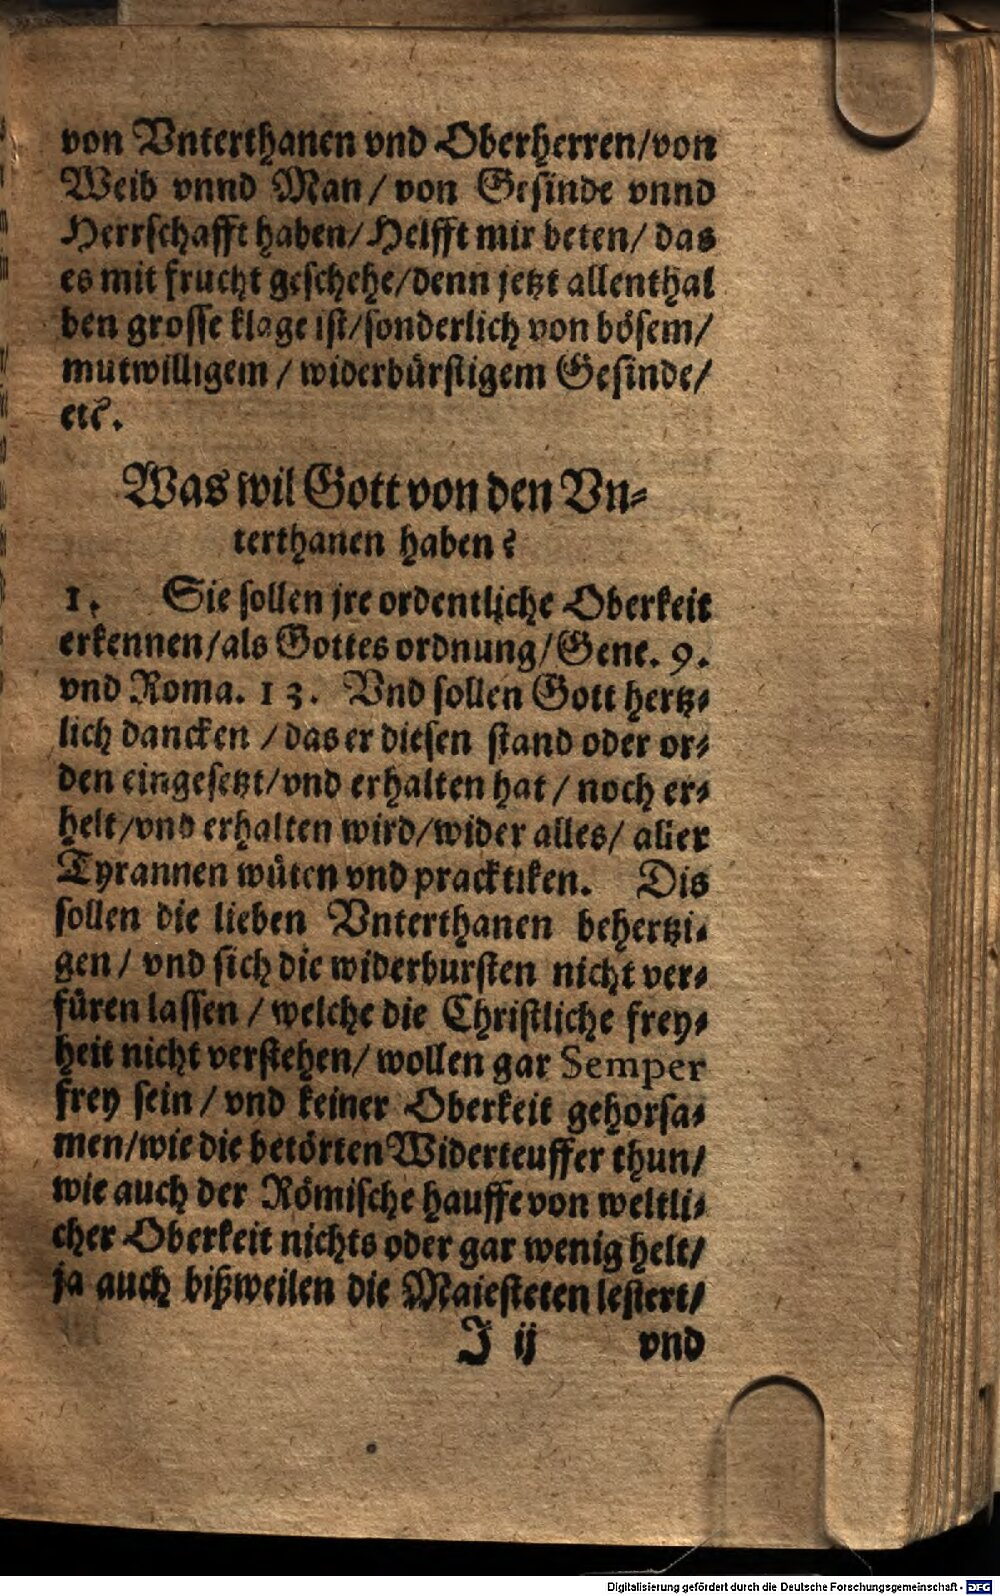 von Vnterthanen vnd Oberherren/von
Weib vnnd Man/ von Gesinde vnnd
Herrschafft haben/ Helfft mir beten/ das
es mit frucht geschehe/denn jetzt allenthal
ben grosse klage ist/sonderlich von bösem/
mutwilligem / widerbürstigem Gesinde/
etc.
Was wil Gott von den Vn-
terthanen haben?
1. Sie sollen jre ordentliche Oberkeit
erkennen/als Gottes ordnung/Gene. 9.
vnd Roma. 13. Vnd sollen Gott hertz-
lich dancken / das er diesen stand oder or-
den eingesetzt/vnd erhalten hat / noch er-
helt/vnd erhalten wird/wider alles/ aller
Tyrannen wüten vnd practtiken. Dis
sollen die lieben Vnterthanen behertzi-
gen / vnd sich die widerbursten nicht ver-
füren lassen / welche die Christliche frey-
heit nicht verstehen/ wollen gar Semper
frey sein / vnd keiner Oberkeit gehorsa-
men/wie die betörten Widerteuffer thun/
wie auch der Römische hauffe von weltli-
cher Oberkeit nichts oder gar wenig helt/
ja auch bißweilen die Maiesteten lestert/
J ij vnd
Digitalisierung gefördert durch die Deutsche Forschungsgemeinschaft - DFG